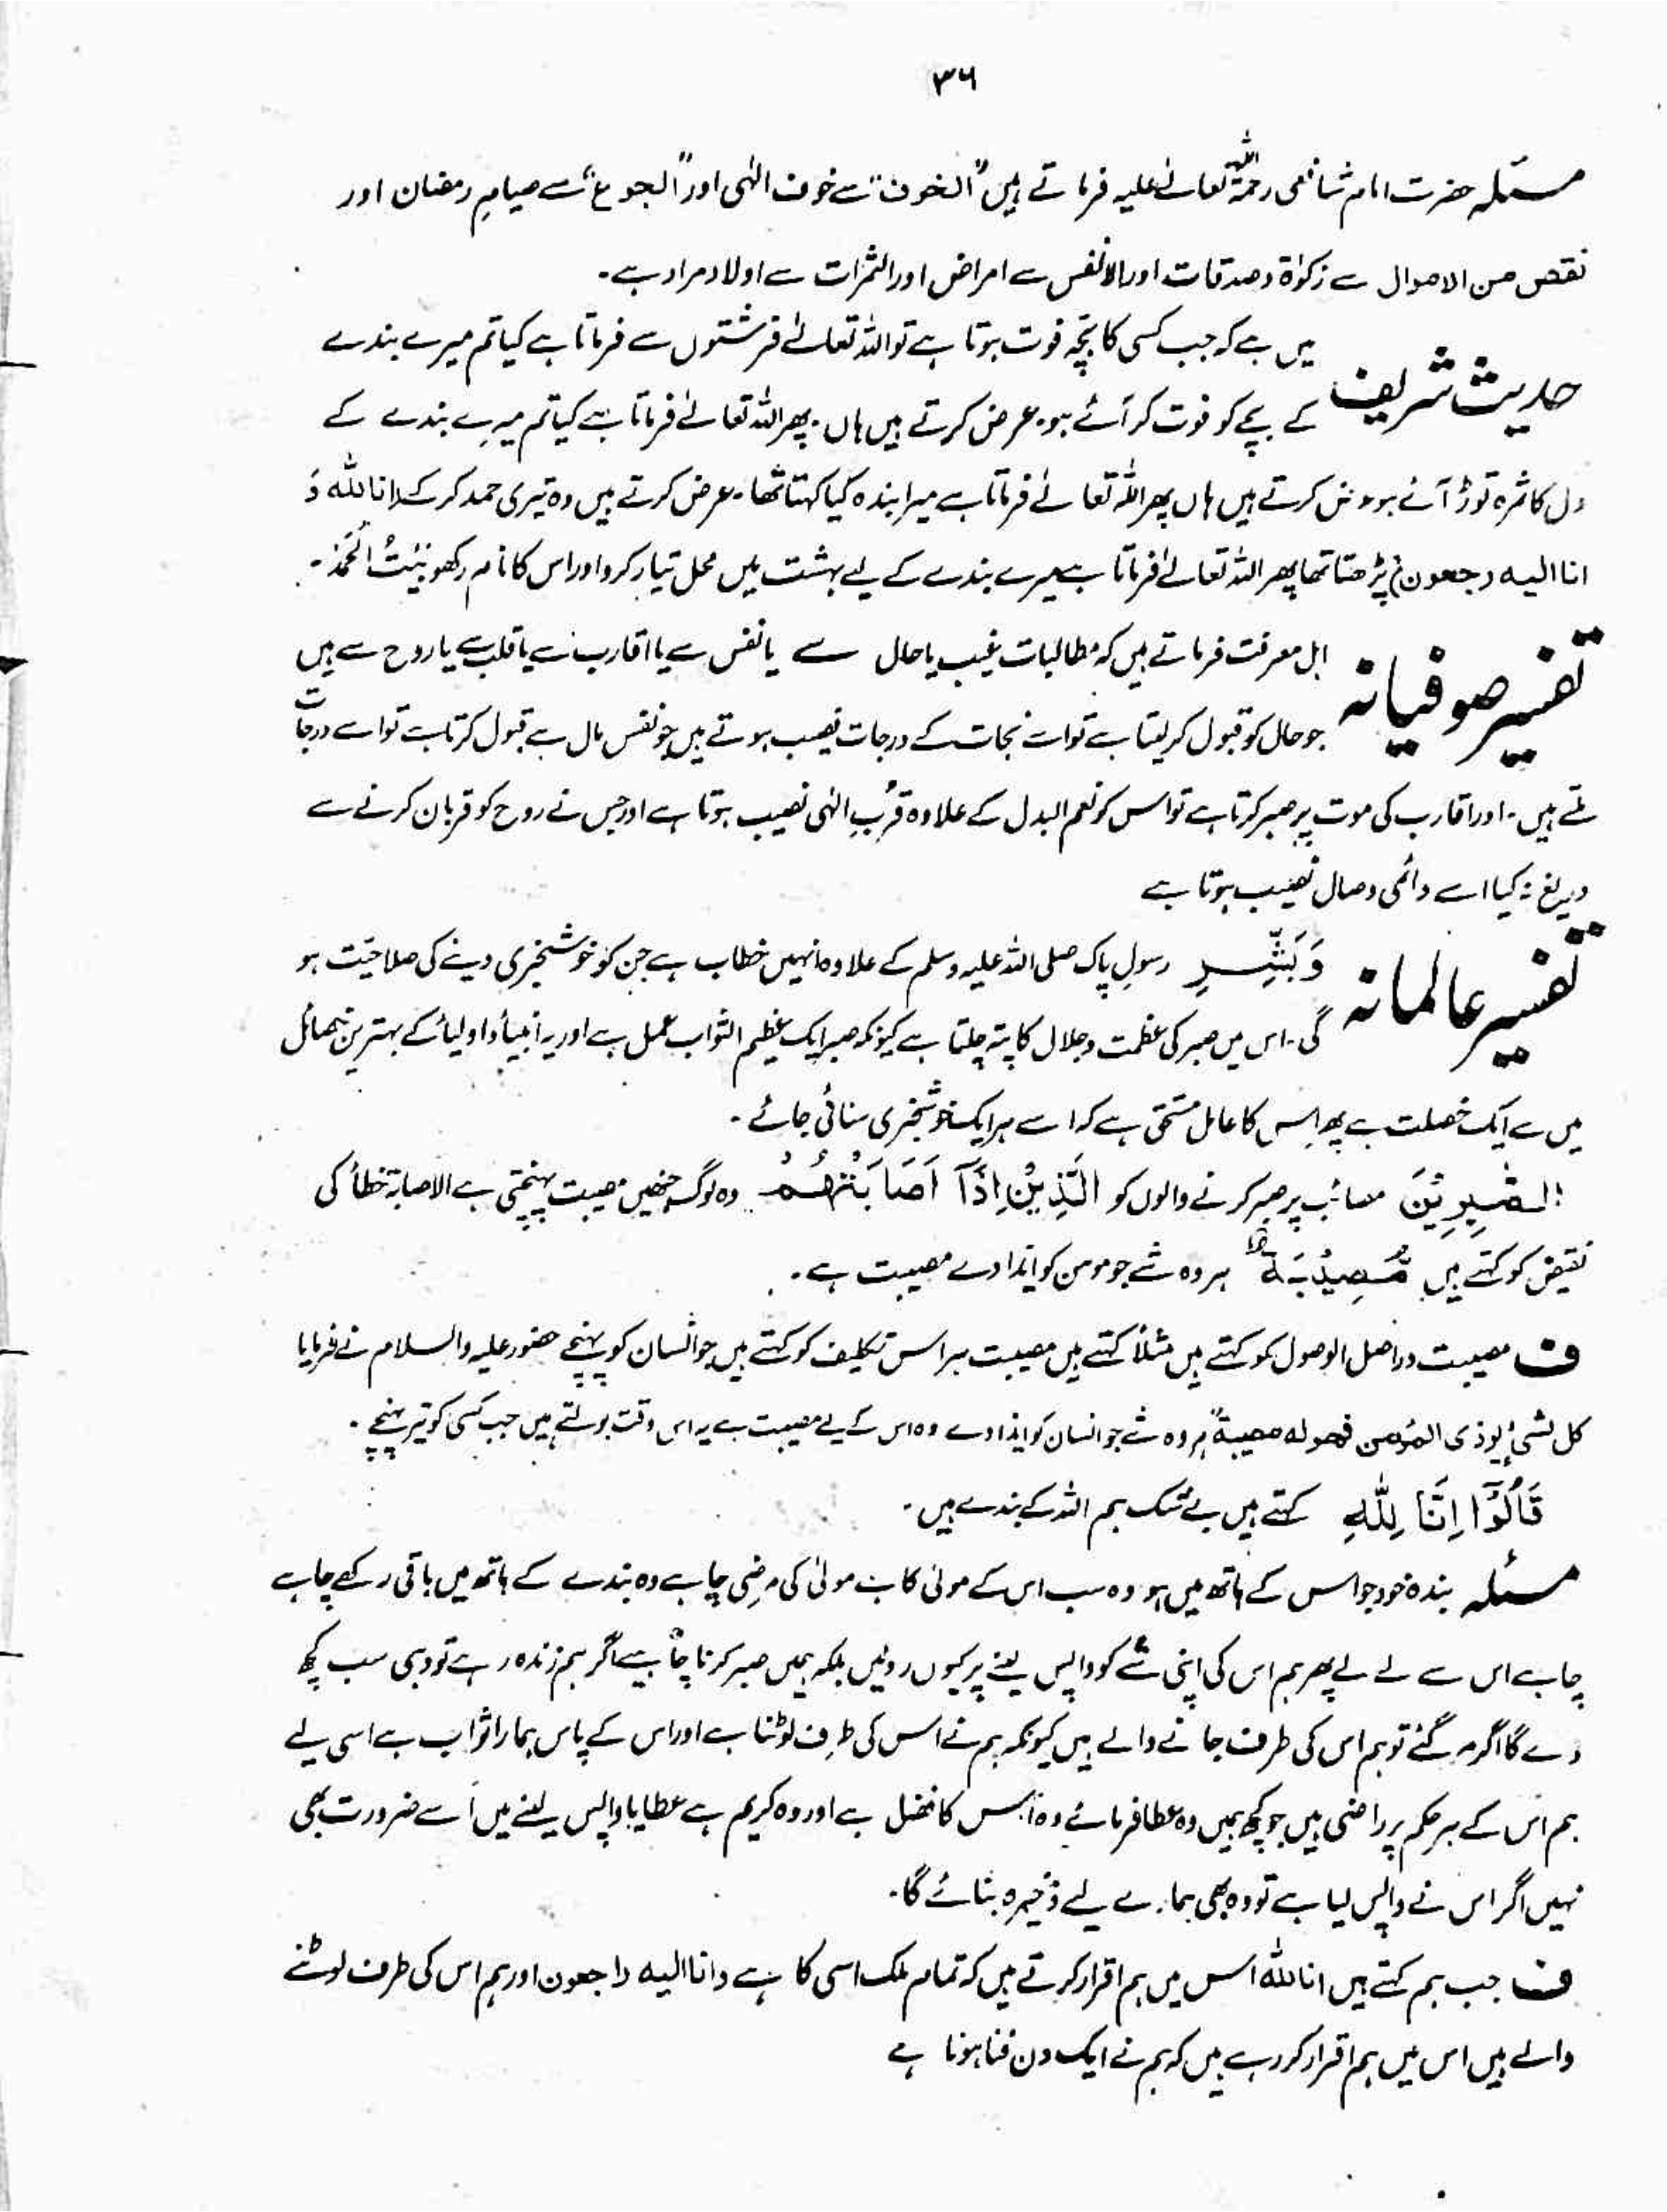 ۳۶
مسئلہ حضرت امام شافعی رحمۃ اللہ تعالےٰ علیہ فرماتے ہیں "الخوف" سے خوف الٰہی اور "الجوع" سے صیامِ رمضان اور
نقص من الاموال سے زکوٰۃ و صدقات اور الانفس سے امراض اور الثمرات سے اولاد مراد ہے۔
حدیث شریف میں ہے کہ جب کسی کا بچّہ فوت ہوتا ہے تو اللہ تعالےٰ فرشتوں سے فرماتا ہے کیا تم میرے بندے
کے بچے کو فوت کر آئے ہو۔ عرض کرتے ہیں ہاں۔ پھر اللہ تعالےٰ فرماتا ہے کیا تم میرے بندے کے
دل کا ثمرہ توڑ آئے ہو عرض کرتے ہیں ہاں پھر اللہ تعالےٰ فرماتا ہے میرا بندہ کیا کہتا تھا۔ عرض کرتے ہیں وہ تیری حمد کر کے انا للہ وَ
انا الیہ رجعون پڑھتا تھا پھر اللہ تعالےٰ فرماتا ہے میرے بندے کے لیے بہشت میں محل تیار کرو اور اس کا نام رکھو بَیْتُ الْحَمْد۔
تفسیر صوفیانہ اہل معرفت فرماتے ہیں کہ مطالبات غیب یا حال سے یا نفس سے یا اقارب سے یا قلب سے یا روح سے ہیں
جو حال کو قبول کر لیتا ہے تو اسے نجات کے درجات نصیب ہوتے ہیں جو نفس مال سے قبول کرتا ہے تو اسے درجات
ملتے ہیں۔ اور اقارب کی موت پر صبر کرتا ہے تو اس کو نعم البدل کے علاوہ قُربِ الٰہی نصیب ہوتا ہے اور جس نے روح کو قربان کرنے سے
دریغ نہ کیا اسے دائمی وصال نصیب ہوتا ہے
تفسیر عالمانہ وَبَشِّرِ رسولِ پاک صلی اللہ علیہ وسلم کے علاوہ انہیں خطاب ہے جن کو خوشخبری دینے کی صلاحیّت ہو
گی۔ اس میں صبر کی عظمت و جلال کا پتہ چلتا ہے کیونکہ صبر ایک عظیم الثواب عمل ہے اور یہ انبیاء و اولیاء کے بہترین خصائل
میں سے ایک خصلت ہے پھر اس کا عامل مستحق ہے کہ اسے ہر ایک خوشخبری سنائی جائے۔
الصّٰبِرِیْنَ مصائب پر صبر کرنے والوں کو الَّذِیْنَ اِذَآ اَصَابَتْهُمْ وہ لوگ جنھیں مصیبت پہنچتی ہے الاصابۃ خطأ کی
نقیض کو کہتے ہیں مُّصِیْبَةٌ ہر وہ شے جو مومن کو ایذا دے مصیبت ہے۔
ف مصیبت دراصل الوصول کو کہتے ہیں مثلاً کہتے ہیں مصیبت ہر اس تکلیف کو کہتے ہیں جو انسان کو پہنچے حضور علیہ والسلام نے فرمایا
کل شیٔ یوذی المؤمن فھو لہ مصیبۃ" ہر وہ شے جو انسان کو ایذا دے وہ اس کے لیے مصیبت ہے یہ اس وقت بولتے ہیں جب کسی کو تیر پہنچے۔
قَالُوْٓا اِنَّا لِلّٰهِ کہتے ہیں بے شک ہم اللہ کے بندے ہیں۔
مسئلہ بندہ خود جو اس کے ہاتھ میں ہو وہ سب اس کے مولیٰ کا ہے مولیٰ کی مرضی چاہے وہ بندے کے ہاتھ میں باقی رکھے چاہے
چاہے اس سے لے لے پھر ہم اس کی اپنی شے کو واپس لینے پر کیوں روئیں بلکہ ہمیں صبر کرنا چاہیے اگر ہم زندہ رہے تو وہی سب کچھ
دے گا اگر مر گئے تو ہم اس کی طرف جانے والے ہیں کیونکہ ہم نے اس کی طرف لوٹنا ہے اور اس کے پاس ہمارا ثواب ہے اسی لیے
ہم اس کے ہر حکم پر راضی ہیں جو کچھ ہمیں وہ عطا فرمائے وہ اُس کا فضل ہے اور وہ کریم ہے عطایا واپس لینے میں اُسے ضرورت بھی
نہیں اگر اس نے واپس لیا ہے تو وہ بھی ہمارے لیے ذخیرہ بنائے گا۔
ف جب ہم کہتے ہیں انا للہ اس میں ہم اقرار کرتے ہیں کہ تمام ملک اسی کا ہے و انا الیہ راجعون اور ہم اس کی طرف لوٹنے
والے ہیں اس میں ہم اقرار کر رہے ہیں کہ ہم نے ایک دن فنا ہونا ہے